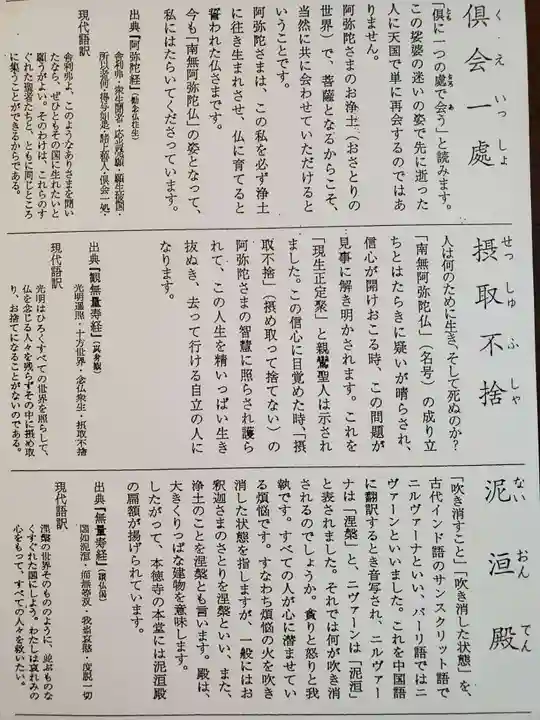 くえいっしょ
倶会一處
「倶に一つの處で会う」と読みます。
とも ところ あ
この娑婆の迷いの姿で先に逝った
人に天国で単に再会するのではあ
りません。
阿弥陀さまのお浄土(おさとりの
世界)で、菩薩となるからこそ、
当然に共に会わせていただけると
いうことです。
阿弥陀さまは、この私を必ず浄土
に往き生まれさせ、仏に育てると
誓われた仏さまです。
今も「南無阿弥陀仏」の姿となって、
私にはたらいてくださっています。
出典『阿弥陀経』
舎利弗・衆生聞者・応当発願・願生彼国・
所以者何・得与如是・諸上善人・倶会一処・
現代語訳
舎利弗よ、このようなありさまを聞い
たなら、ぜひともその国に生れたいと
願うがよい。そのわけは、これらのす
ぐれた聖者たちと、ともに同じところ
に集うことができるからである。
せっしゅふしゃ
摂取不捨
人は何のために生き、そして死ぬのか?
「南無阿弥陀仏」(名号)の成り立
ちとはたらきに疑いが晴らされ、
信心が開けおこる時、この問題が
見事に解き明かされます。これを
「現生正定聚」と親鸞聖人は示され
ました。この信心に目覚めた時、「摂
取不捨」(摂め取って捨てない)の
阿弥陀さまの智慧に照らされ護ら
れて、この人生を精いっぱい生き
抜ぬき、去って行ける自立の人に
なります。
出典『観無量寿経』(真身観)
光明遍照・十方世界・念仏衆生・摂取不捨
現代語訳
光明はひろくすべての世界を照らして、
仏を念じる人々を残らずその中に摂め取
り、お捨てになることがないのである。
ないおんでん
泥洹殿
「吹き消すこと」「吹き消した状態」を、
古代インド語のサンスクリット語で
ニルヴァーナといい、パーリ語ではニ
ヴァーンといいました。これを中国語
に翻訳するとき音写され、ニルヴァー
ナは「涅槃」と、ニヴァーンは「泥洹」
と表されました。それでは何が吹き消
されるのでしょうか。貪りと怒りと我
執です。すべての人が心に潜ませてい
る煩悩です。すなわち煩悩の火を吹き
消した状態を指しますが、一般にはお
釈迦さまのさとりを涅槃といい、また、
浄土のことを涅槃とも言います。殿は、
大きくりっぱな建物を意味します。
したがって、本徳寺の本堂には泥洹殿
の扁額が揚げられています。
出典『無量寿経』(讃仏偈)
国如泥洹・而無等双・我当哀愍・度脱一切
現代語訳
涅槃の世界そのもののように、並ぶものな
くすぐれた国にしよう。わたしは哀れみの
心をもって、すべての人々を救いたい。